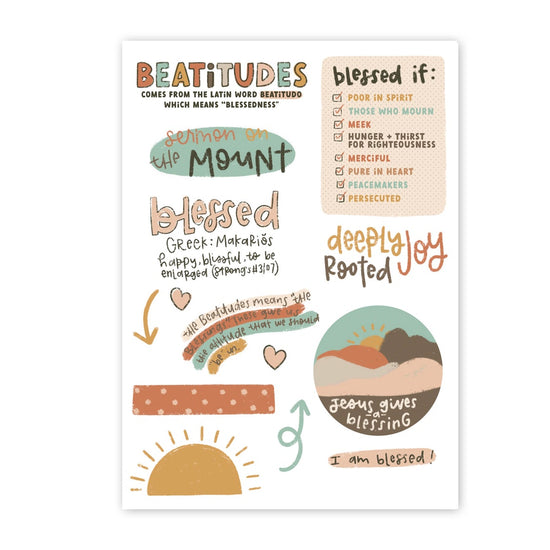 BEATITUDES
COMES FROM THE LATIN WORD BEATITUDO
WHICH MEANS "BLESSEDNESS"
sermon on
the MOUNT
blessed
Greek: Makariós
happy, blissful, to be
enlarged (Strong's #3107)
the Beatitudes means "the
Blessings" These give us
the attitude that we should
be in
blessed if:
POOR IN SPIRIT
THOSE WHO MOURN
MEEK
HUNGER + THIRST
FOR RIGHTEOUSNESS
MERCIFUL
PURE IN HEART
PEACEMAKERS
PERSECUTED
deeply
Rooted Joy
Jesus gives
-a-
blessing
I am blessed!